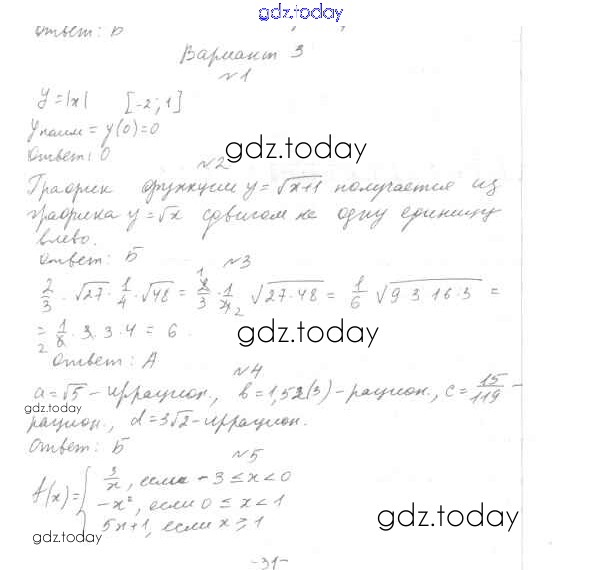 gdz.today
Ответ: Б
Вариант 3
№1
y = |x| [-2; 1]
y наим = y(0) = 0
Ответ: 0
gdz.today
№2
График функции y = √x+1 получается из
графика y = √x сдвигом на одну единицу
влево.
Ответ: Б
№3
2/3 · √27 · 1/4 · √48 = 2/3 · 1/4 √27·48 = 1/6 √9·3·16·3 =
= 1/6 · 3 · 3 · 4 = 6.
gdz.today
Ответ: А
№4
a = √5 – иррацион., b = 1,52(3) – рацион., c = 15/119 –
gdz.today
рацион., d = 3√2 – иррацион.
Ответ: Б
№5
f(x) = { 3/x, если -3 ≤ x < 0
-x², если 0 ≤ x < 1
5x+1, если x ≥ 1
gdz.today
gdz.today
-31-